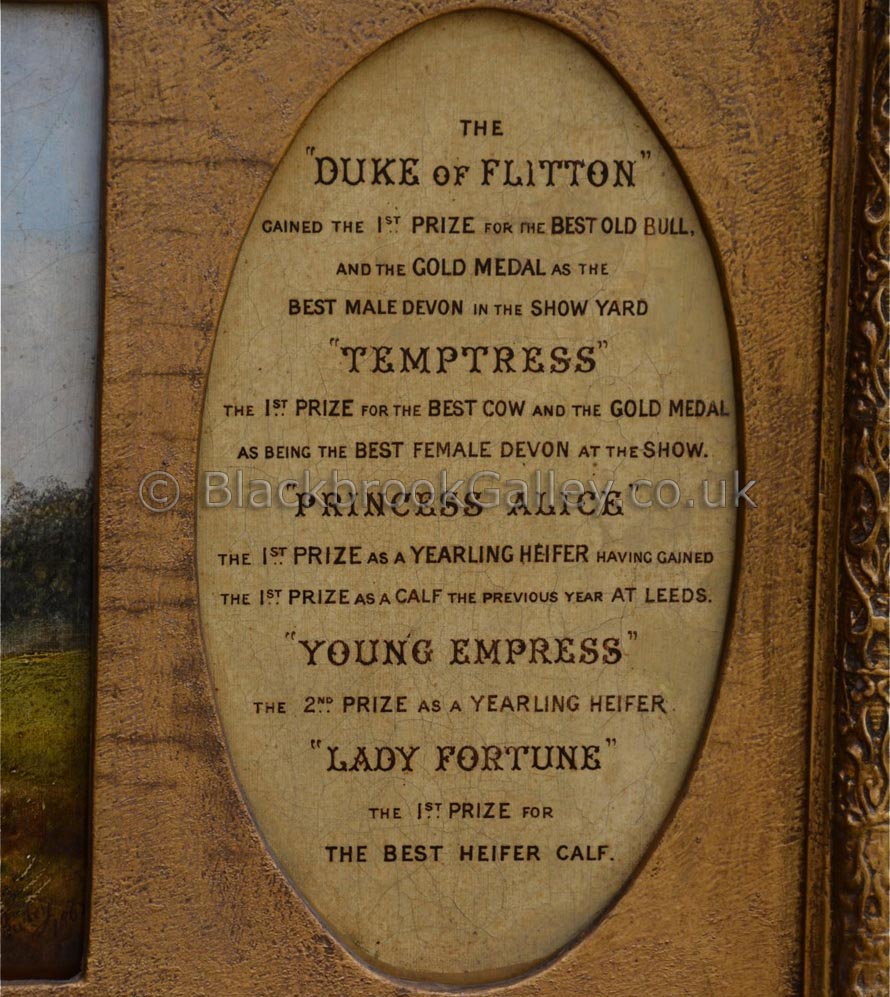 THE
"DUKE OF FLITTON"
GAINED THE 1ST PRIZE FOR THE BEST OLD BULL,
AND THE GOLD MEDAL AS THE
BEST MALE DEVON IN THE SHOW YARD
"TEMPTRESS"
THE 1ST PRIZE FOR THE BEST COW AND THE GOLD MEDAL
AS BEING THE BEST FEMALE DEVON AT THE SHOW.
© BlackbrookGallery.co.uk
"PRINCESS ALICE"
THE 1ST PRIZE AS A YEARLING HEIFER HAVING GAINED
THE 1ST PRIZE AS A CALF THE PREVIOUS YEAR AT LEEDS.
"YOUNG EMPRESS"
THE 2ND PRIZE AS A YEARLING HEIFER.
"LADY FORTUNE"
THE 1ST PRIZE FOR
THE BEST HEIFER CALF.